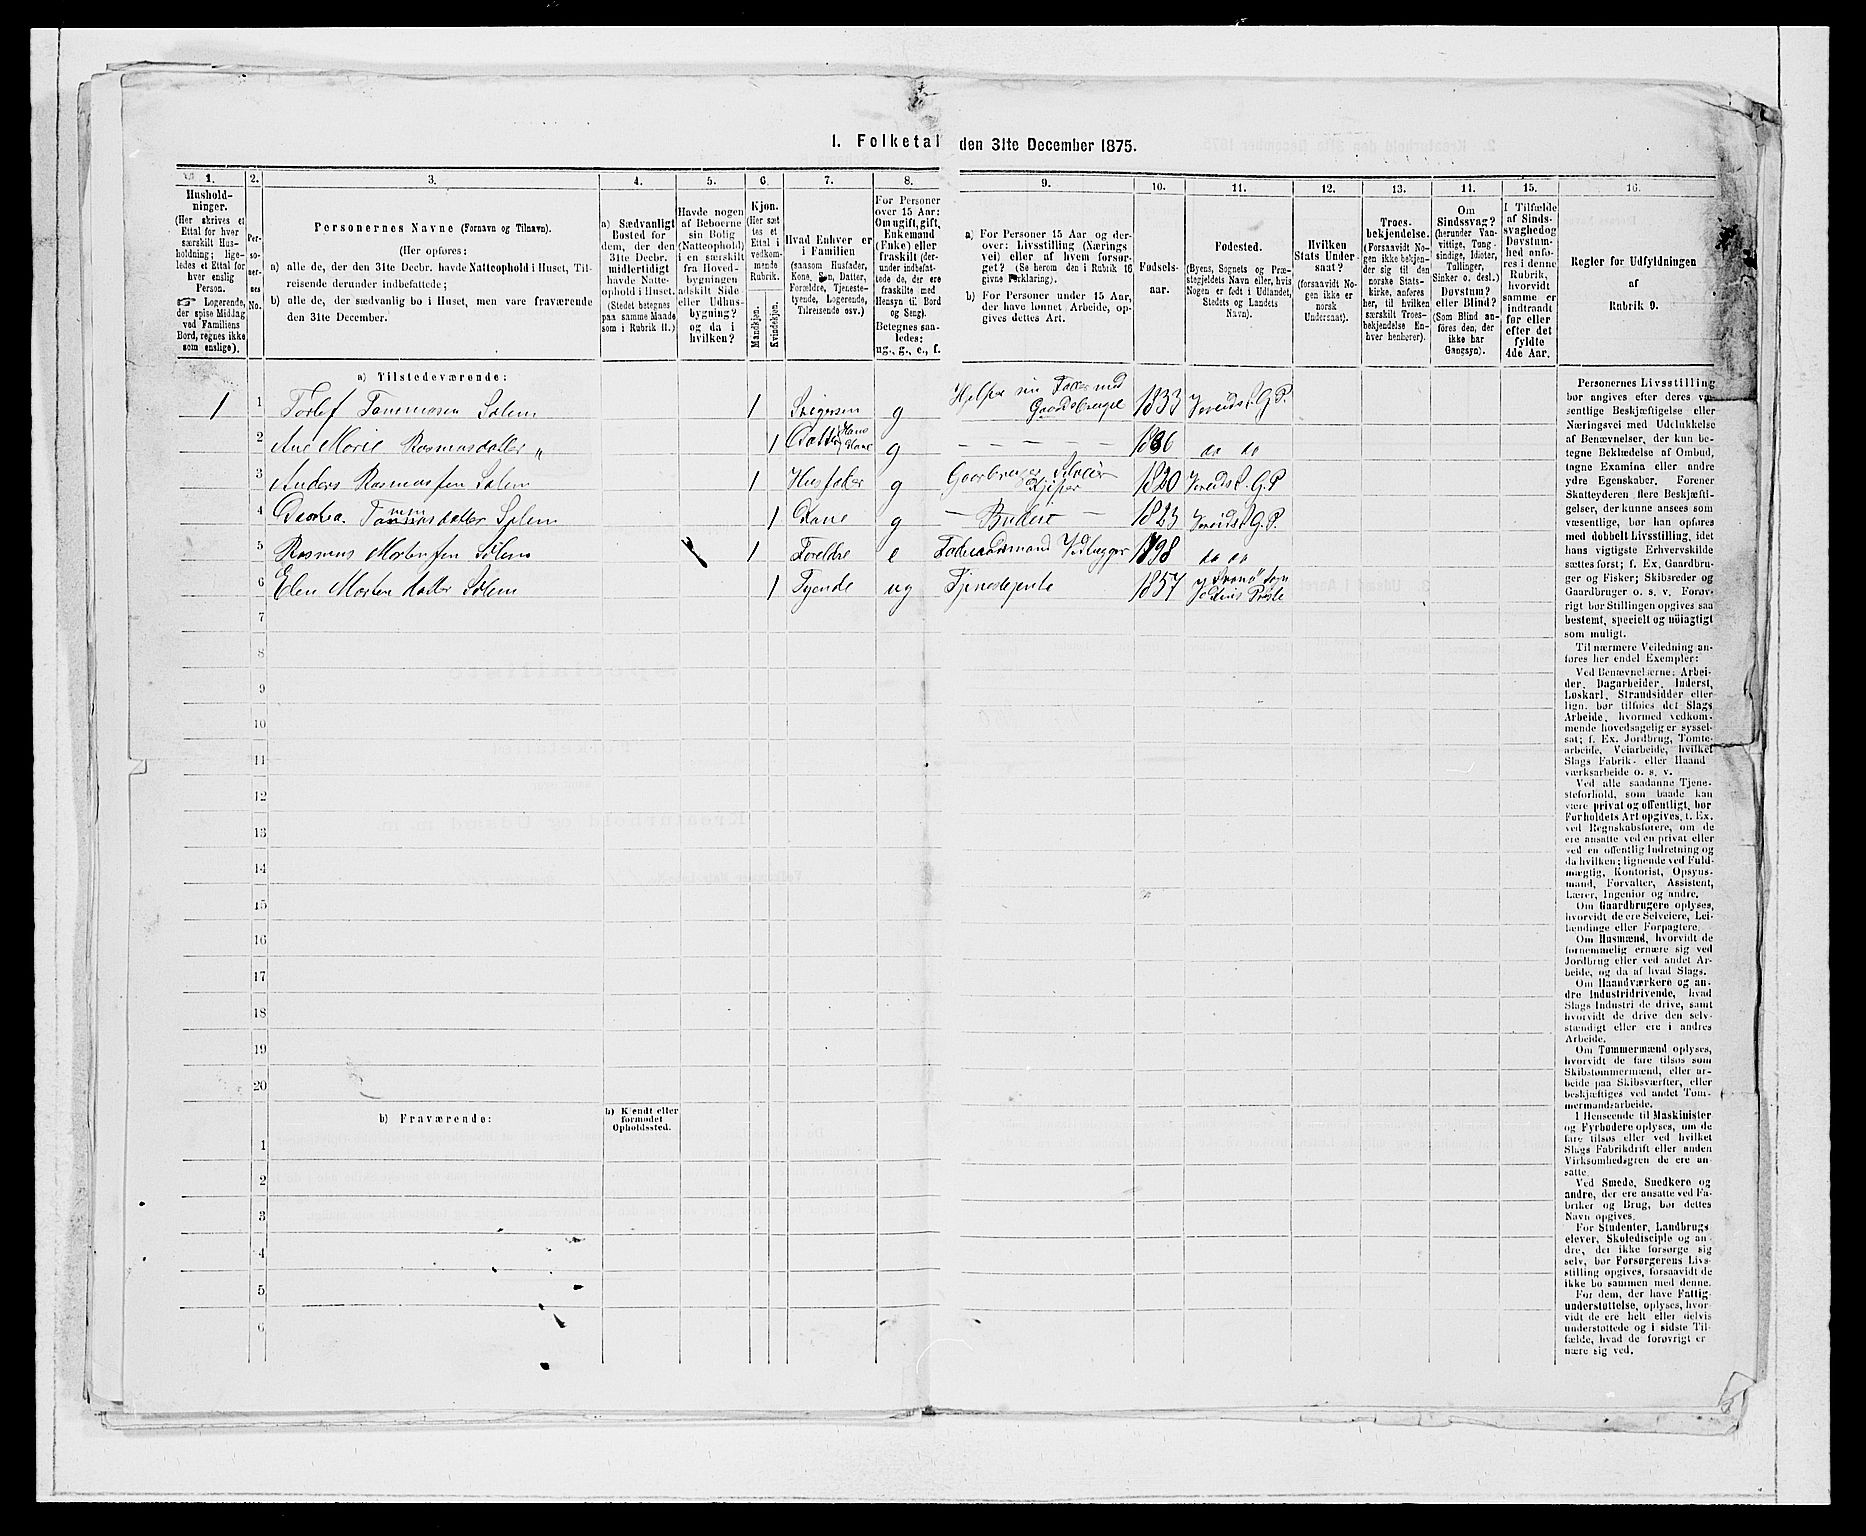 1. Folketal den 31te December 1875.
1.
Hushold-
ninger.
(Her skrives et
Ettal for hver
særskilt Hus-
holdning; lige-
ledes et Ettal for
hver enslig
Person.
☞ Logerende,
der spise Middag
ved Familiens
Bord, regnes ikke
som enslige).
2.
Per-
so-
ner-
nes
No.
3.
Personernes Navne (Fornavn og Tilnavn).
(Her opføres:
a) alle de, der den 31te Decbr. havde Natteophold i Huset, Til-
reisende derunder indbefattede;
b) alle de, der sædvanlig bo i Huset, men vare fraværende
den 31te December.
4.
a) Sædvanligt
Bosted for
dem, der den
31te Decbr.
midlertidigt
havde Natte-
ophold i Huset.
(Stedet betegnes
paa samme Maade
som i Rubrik 11.)
5.
Havde nogen
af Beboerne
sin Bolig
(Natteophold)
i en særskilt
fra Hoved-
bygningen
adskilt Side
eller Udhus-
bygning?
og da i
hvilken?
6.
Kjøn.
(Her sæt-
tes et
Ettal i
vedkom-
mende
Rubrik.
Mandkjøn.
Kvindekjøn.
7.
Hvad Enhver er
i Familien
(saasom Husfader,
Kone, Søn, Datter,
Forældre, Tjeneste-
tyende, Logerende,
Tilreisende osv.)
8.
For Personer
over 15 Aar:
Om ugift, gift,
Enkemand
(Enke) eller
fraskilt (der-
under indbefat-
tede de, der ere
fraskilte med
Hensyn til Bord
og Seng).
Betegnes saa-
ledes:
ug., g., e., f.
9.
a) For Personer 15 Aar og der-
over: Livsstilling (Nærings
vei) eller af hvem forsør-
get? (Se herom den i Rubrik 16
givne Forklaring).
b) For Personer under 15 Aar,
der have lønnet Arbeide, op-
gives dettes Art.
10.
Fødsels-
aar.
11.
Fødested.
(Byens, Sognets og Præ-
stegjeldets Navn eller, hvis
Nogen er født i Udlandet,
Stedets og Landets
Navn).
12.
Hvilken
Stats Under-
saat?
(forsaavidt No-
gen ikke er
norsk
Undersaat).
13.
Troes-
bekjendelse.
(Forsaavidt No-
gen ikke bekjen-
der sig til den
norske Stats-
kirke, anføres
her, til hvilken
særskilt Troes-
bekjendelse En-
hver henhører).
14.
Om
Sindssvag?
(herunder Van-
vittige, Tung-
sindige, Idioter,
Tullinger,
Sinker o. desl.)
Døvstum?
eller Blind?
(Som Blind an-
føres den, der
ikke har
Gangsyn).
15.
I Tilfælde
af Sinds-
svaghed og
Døvstum-
hed anfø-
res i denne
Rubrik,
hvorvidt
samme er
indtraadt
før eller
efter det
fyldte
4de Aar.
16.
Regler for Udfyldningen
af
Rubrik 9.
a) Tilstedeværende:
1 1 Torlef Tommasen Solem 1 Svigersøn g Hjelper sin Fader med Gaardsbruget 1833 G. P.
2 Ane Marie Rasmusdatter „ 1 Datter Hans Kone g — — — — — 1836 do do
3 Anders Rasmussen Solem 1 Husfader g Gaardbruger Selveier Fisker 1820 G. P
4 Tammasdatter Solem 1 Kone g — Budeie — 1823 G. P.
5 Rasmus Mortensen Solem 1 Foreldre e Vedhugger 1798 do do
6 Elen Mortendatter Solem 1 Tyende ug Tjenestejente 1857
7
8
9
10
11
12
13
14
15
16
17
18
19
20
b) Fraværende:
b) Kjendt eller
formodet
Opholdssted.
1
2
3
4
5
6
Personernes Livsstilling
bør angives efter deres væ-
sentlige Beskjæftigelse eller
Næringsvei med Udelukkelse
af Benævnelser, der kun be-
tegne Beklædelse af Ombud,
tagne Examina eller andre
ydre Egenskaber. Forener
Skatteyderen flere Beskjæfti-
gelser, der kunne ansees som
væsentlige, bør han opføres
med dobbelt Livsstilling, idet
hans vigtigste Erhvervskilde
sættes først; f. Ex. Gaardbru-
ger og Fisker; Skibsreder og
Gaardbruger o. s. v. Forøv-
rigt bør Stillingen opgives saa
bestemt, specielt og nøiagtigt
som muligt.
Til nærmere Veiledning an-
føres her endel Exempler:
Ved Benævnelserne: Arbei-
der, Dagarbeider, Inderst,
Løskarl, Strandsidder eller
lign. bør tilføies det Slags
Arbeide, hvormed vedkom-
mende hovedsagelig er syssel-
sat; f. Ex. Jordbrug, Tømte-
arbeide, Veiarbeide, hvilket
Slags Fabrik- eller Haand
værksarbeide o. s. v.
Ved alle saadanne Tjene-
steforhold, som baade kan
være privat og offentligt, bør
Forholdets Art opgives, t. Ex.
ved Regnskabsførere, om de
ere ansatte ved en privat eller
ved en offentlig Indretning og
da hvilken; lignende ved Fuld-
mægtig, Kontorist, Opsyns-
mand, Forvalter, Assistent,
Lærer, Ingeniør og andre.
Om Gaardbrugere oplyses,
hvorvidt de ere Selveiere, Lei-
lændinge eller Forpagtere.
Om Husmænd, hvorvidt de
fornemmelig ernære sig ved
Jordbrug eller ved andet Ar-
beide, og da af hvad Slags.
Om Haandværkere og an-
dre Industridrivende, hvad
Slags Industri de drive, samt
hvorvidt de drive den selv-
stændigt eller ere i andres
Arbeide.
Om Tømmermænd oplyses,
hvorvidt de fare tilsøs som
Skibstømmermænd, eller ar-
beide paa Skibsværfter, eller
beskjæftiges ved andet Tøm-
mermandsarbeide.
I Henseende til Maskinister
og Fyrbødere oplyses, om de
fare tilsøs eller ved hvilket
Slags Fabrikdrift eller anden
Virksomhedsgren de ere an-
satte.
Ved Smede, Snedkere og
andre, der ere ansatte ved Fa-
briker og Brug, bør dettes
Navn opgives.
For Studenter, Landbrugs
elever, Skoledisciple og an-
dre, der ikke forsørge sig
selv, bør Forsørgerens Livs-
stilling opgives, forsaavidt de
ikke bo sammen med denne.
For dem, der have Fattig-
understøttelse, oplyses, hvor-
vidt de ere helt eller delvis
understøttede og i sidste Til-
fælde, hvad de forøvrigt er
nære sig ved.